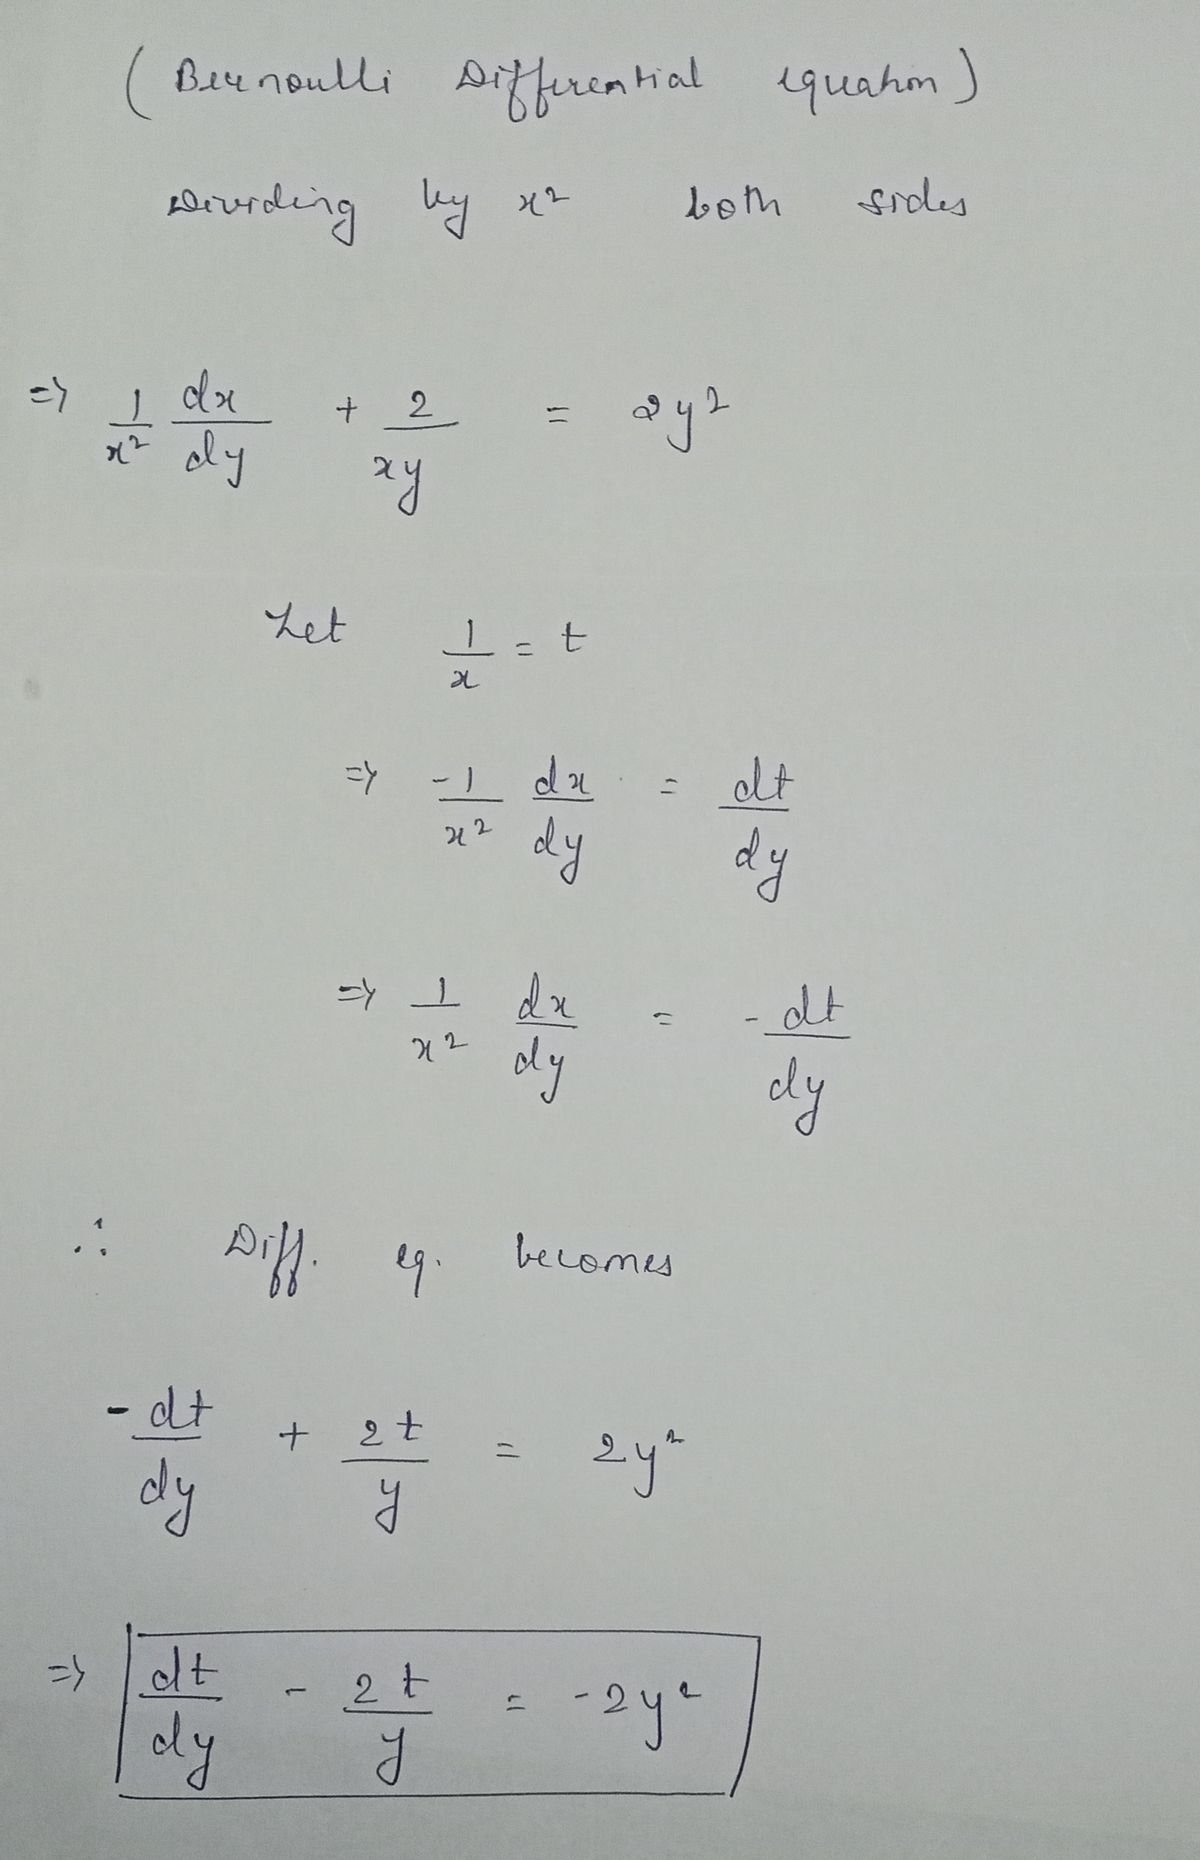 (Bernoulli Differential equation)
Dividing by x² both sides
=> 1/x² dx/dy + 2/xy = 2y²
Let 1/x = t
=> -1/x² dx/dy = dt/dy
=> 1/x² dx/dy = -dt/dy
∴ Diff. eq. becomes
-dt/dy + 2t/y = 2y²
=> dt/dy - 2t/y = -2y²